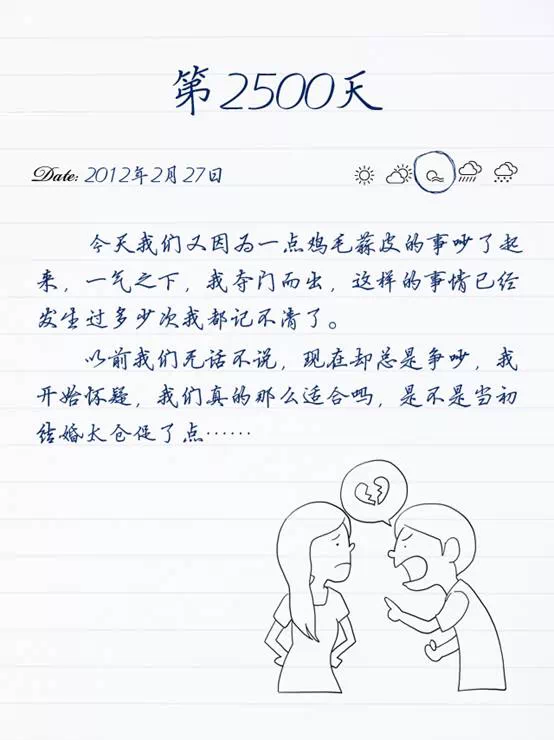 第2500天
Date: 2012年2月27日
今天我们又因为一点鸡毛蒜皮的事吵了起
来，一气之下，我夺门而出，这样的事情已经
发生过多少次我都记不清了。
以前我们无话不说，现在却总是争吵，我
开始怀疑，我们真的那么适合吗，是不是当初
结婚太仓促了点……